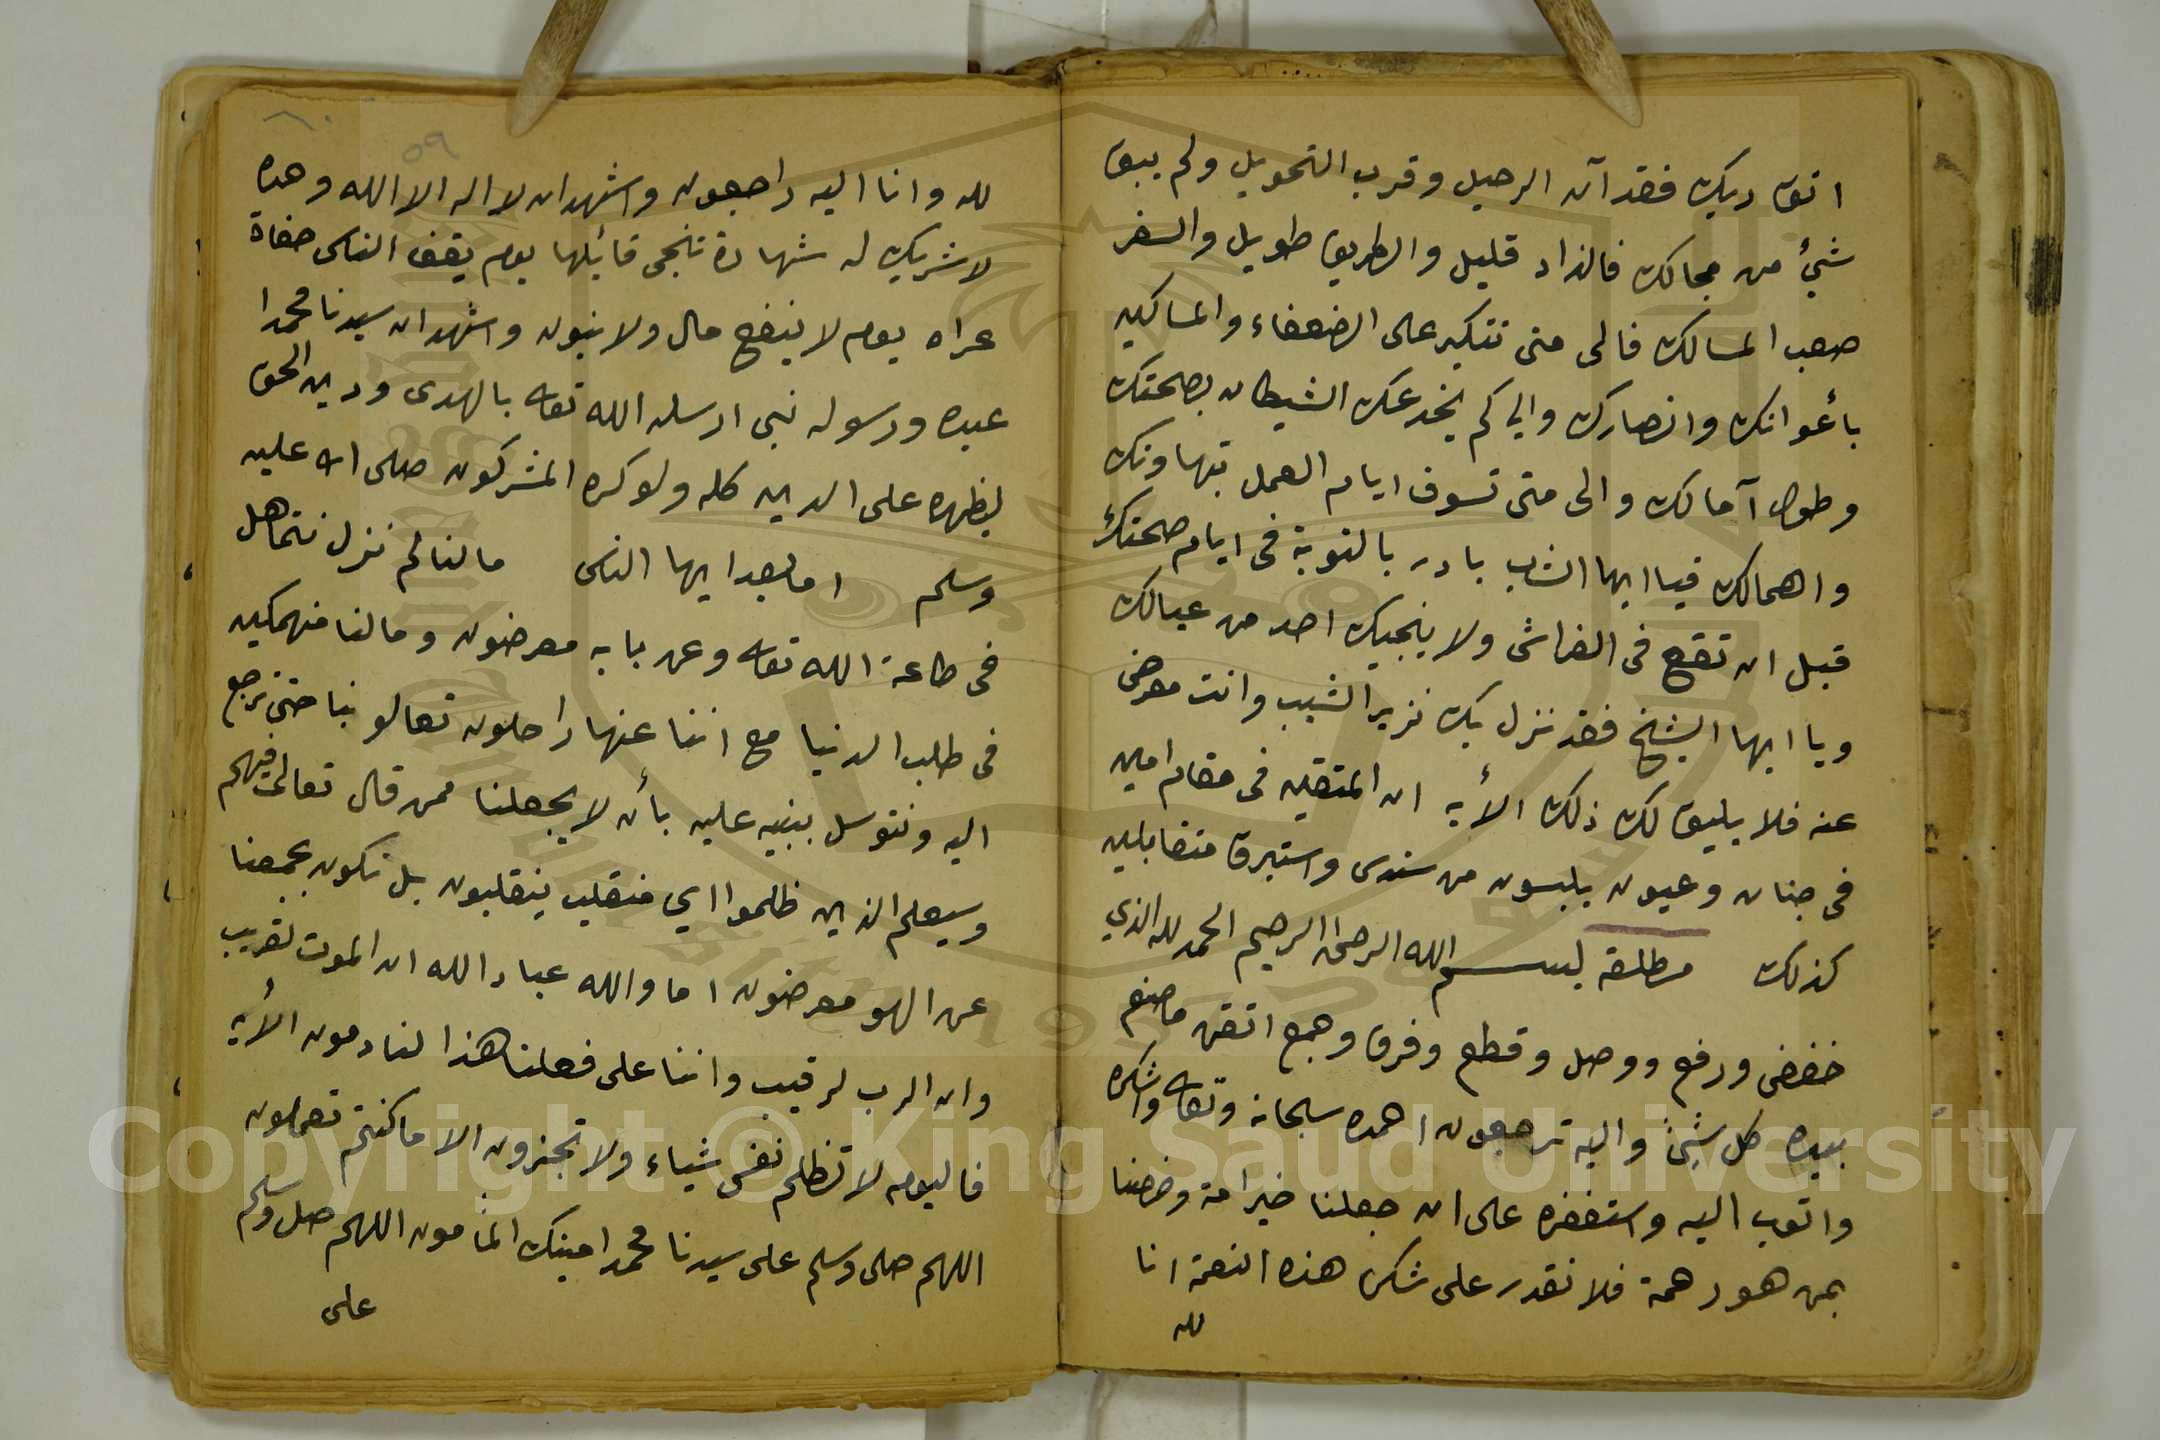 اتق ربك فقد آن الرحيل وقرب التحويل ولم يبق
شئ من مجالك فالزاد قليل والطريق طويل والسفر
صعب المسالك فالى متى تتكبر على الضعفاء والمساكين
بأعوانك وانصارك والى كم يخدعك الشيطان بصحتك
وطول آمالك والى متى تسوف ايام العمل بتهاونك
واهمالك فيا ايها الشاب بادر بالتوبة فى ايام صحتك
قبل ان تقع فى الفراش ولا ينجيك احد من عيالك
ويا ايها الشيخ فقد نزل بك نزير الشيب وانت معرض
عنه فلا يليق لك ذلك الأية ان المتقين فى مقام امين
فى جنان وعيون يلبسون من سندس واستبرق متقابلين
كذلك مطلقة بسم الله الرحمن الرحيم الحمد لله الذي
خفض ورفع ووصل وقطع وفرق وجمع اتقن ما صنع
بيده كل شئ واليه ترجعون احمده سبحانه وتعالى واشكره
واتوب اليه واستغفره على ان جعلنا خير امة وخصنا
بمن هو رحمة فلا نقدر على شكر هذه النعمة انا
لله
٥٩
٦٠
لله وانا اليه راجعون واشهد ان لا اله الا الله وحده
لا شريك له شهادة تنجى قائلها يوم يقف الناس حفاة
عراه يوم لا ينفع مال ولا بنون واشهد ان سيدنا محمدا
عبده ورسوله نبى ارسله الله تعالى بالهدى ودين الحق
ليظهره على الدين كله ولو كره المشركون صلى الله عليه
وسلم اما بعد ايها الناس ما لنا لم نزل نتماهل
فى طاعة الله تعالى وعن بابه معرضون وما لنا منهمكين
فى طلب الدنيا مع اننا عنها راحلون تعالو بنا حتى نرجع
اليه ونتوسل بنبيه عليه بأن لا يجعلنا ممن قال تعالى فيهم
وسيعلم الذين ظلموا اي منقلب ينقلبون بل نكون بجمعنا
عن الهو معرضون اما والله عباد الله ان الموت لقريب
وان الرب لرقيب واننا على فعلنا هذا لنادمون الأية
فاليوم لا تظلم نفس شياء ولا تجزون الا ما كنتم تعملون
اللهم صلى وسلم على سيدنا محمد امينك المأمون اللهم صل وسلم
على
Copyright © King Saud University